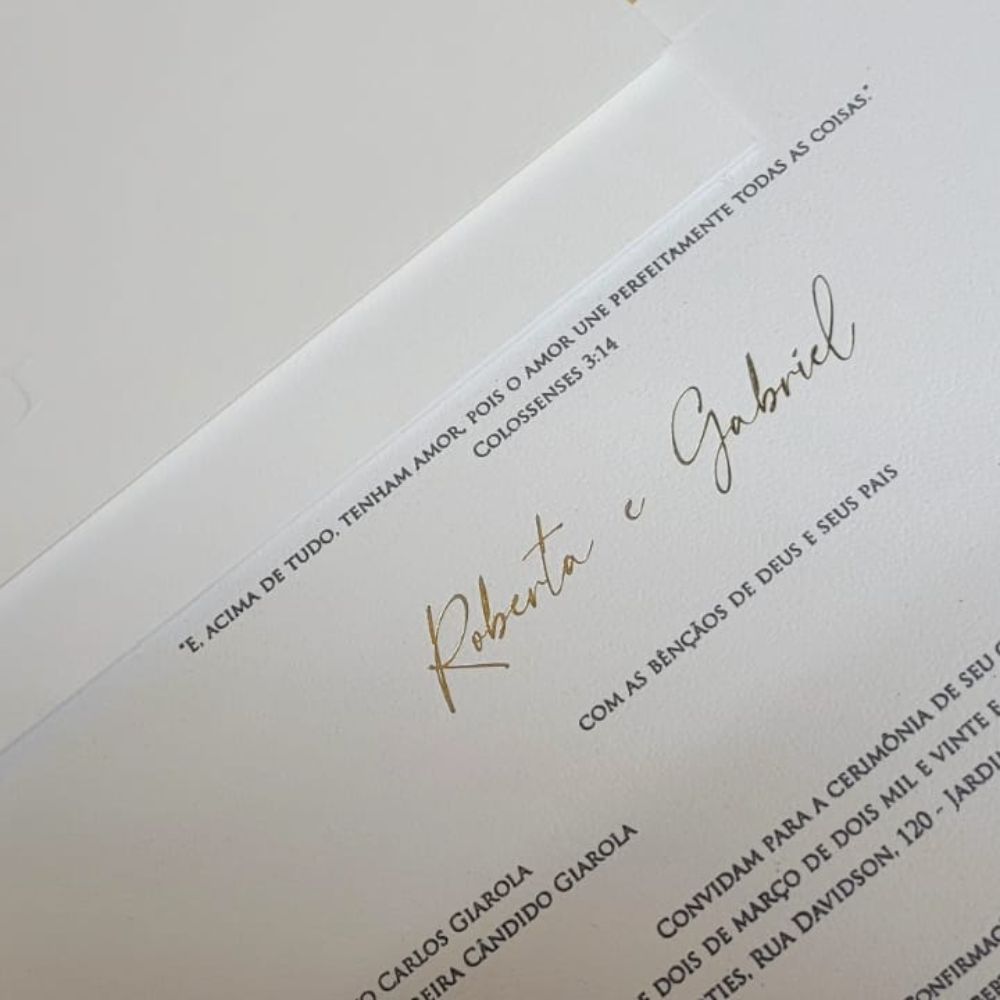 "E, ACIMA DE TUDO, TENHAM AMOR, POIS O AMOR UNE PERFEITAMENTE TODAS AS COISAS."
COLOSSENSES 3:14
Roberta e Gabriel
COM AS BÊNÇÃOS DE DEUS E SEUS PAIS
CARLOS GIAROLA
CÂNDIDO GIAROLA
CONVIDAM PARA A CERIMÔNIA DE SEU
DOIS DE MARÇO DE DOIS MIL E VINTE E
RUA DAVIDSON, 120 -